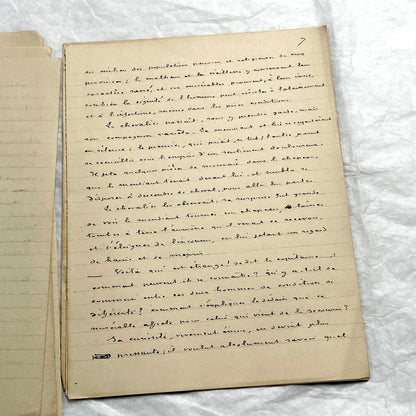 7
au milieu des populations pauvres et religieuses de nos
provinces; le malheur et la vieillesse y prennent un
caractère sacré, et ces misérables prouvent, à leur insu,
combien la dignité de l'homme peut résister à l'abaissement
et à l'infortune, même dans les pires conditions.
Le chevalier passait, sans y prendre garde, mais
son compagnon s'arrêta. Le mendiant et lui se regardèrent
en silence; le premier, qui était
se recueillir sous l'empire d'un sentiment douloureux.
Il jeta quelque pièce de monnaie dans le chapeau
que le mendiant tenait devant lui, et sembla se
disposer à descendre de cheval, pour aller lui parler.
Le chevalier le observait: sa surprise fut grande
de voir le mendiant tourner son chapeau, laisser
tomber à terre l'aumône qu'il venait de recevoir,
et s'éloigner de l'inconnu, en lui jetant un regard
de haine et de mépris.
— Voilà qui est étrange! se dit le capitaine...
comment peuvent-ils se connaître? Qu'y a-t-il de
commun entre ces deux hommes de condition si
différente? comment s'expliquer le dédain que ce
misérable affecte pour celui qui vient de le secourir?
Sa curiosité, vivement émue, en devint plus
pressante; il voulut absolument savoir quel